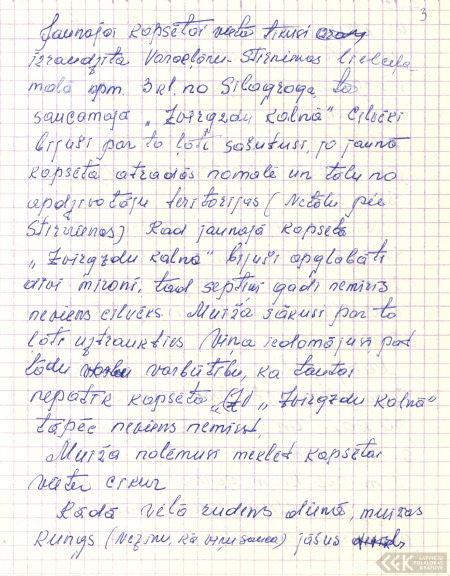 3
Jaunajai kapsētai vieta tikusi
izraudzīta Varakļānu - Stirnienas lielceļa
malā apm. 3 kl. no Silagroga tā
saucamajā "Zvirgzdu kalnā" Cilvēki
bijuši par to ļoti sašutuši, jo jaunā
kapsēta atradās nomalē un tālu no
apdzīvotāju teritorijas (Netālu pēc
Stirnienas) Kad jaunajā kapsētā
"Zvirgzdu kalnā" bijuši apglabāti
divi mironi, tad septiņi gadi nemiris
neviens cilvēks. Muiža sākusi par to
ļoti uztraukties Viņa iedomājusi pat
tādu varbūtību, ka tautai
nepatīk kapsēta "Zvirgzdu kalnā"
tāpēc neviens nemirst.
Muiža nolēmusi meklēt kapsētai
vietu citur
Kādā vēlā rudens dienā, muižas
kungs (Nezinu, kā viņu sauca) jāšus
LATVIEŠU
FOLKLORAS
KRĀTUVE